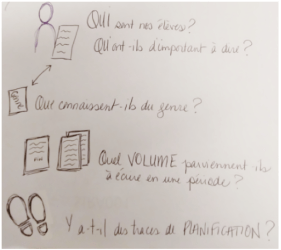 QUI sont nos élèves?
Qu'ont-ils d'important à dire?
Genre
Que connaissent-ils du genre?
Quel VOLUME parviennent ils
à écrire en une période?
Y a-t-il des traces de PLANIFICATION?